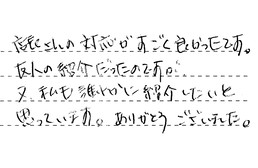 店長さんの対応がすごく良かったです。
友人の紹介だったのですが、
又私も誰かに紹介したいと
思っています。ありがとうございました。